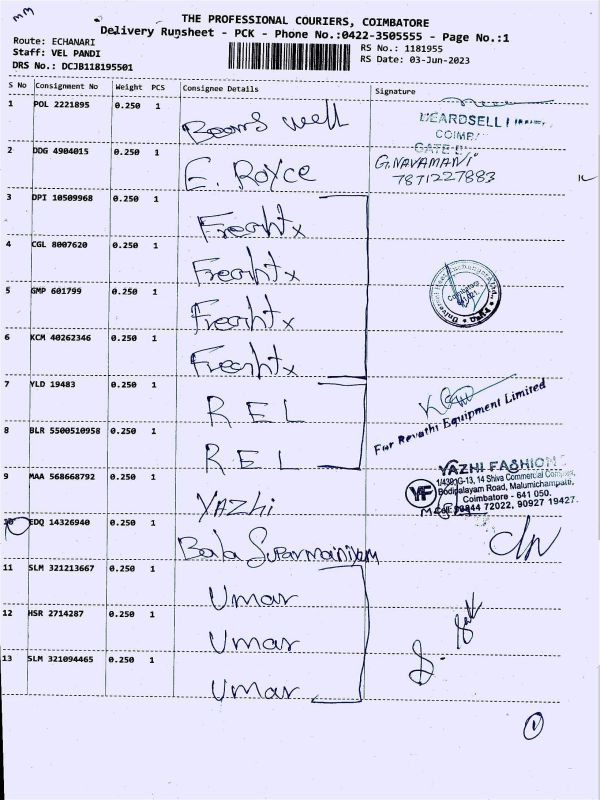 MM
THE PROFESSIONAL COURIERS, COIMBATORE
Delivery Runsheet - PCK - Phone No.:0422-3505555 - Page No.:1
Route: ECHANARI
Staff: VEL PANDI
DRS No.: DCJB118195501
RS No.: 1181955
RS Date: 03-Jun-2023
S No Consignment No Weight PCS Consignee Details Signature
1 POL 2221895 0.250 1 Beams well
BEARDSELL LI
COIMB
GATE
2 DDG 4904015 0.250 1 E. Royce G.NAVAMANI
7871227883
3 DPI 10509968 0.250 1 Freahtx
4 CGL 8007620 0.250 1 Freahtx
Coimbatore
5 GMP 601799 0.250 1 Freahtx
6 KCM 40262346 0.250 1 Freahtx
7 YLD 19483 0.250 1 REL
For Revathi Equipment Limited
8 BLR 5500510958 0.250 1 REL
9 MAA 568668792 0.250 1 YAZhi
YAZHI FASHION
YF
1/439I G-13, 14 Shiva Commercial Complex,
Bodipalayam Road, Malumichampatti,
Coimbatore - 641 050.
Cell: 98844 72022, 90927 19427.
10 EDQ 14326940 0.250 1 Bala Suparmaniyam
11 SLM 321213667 0.250 1 Umar
12 HSR 2714287 0.250 1 Umar
13 SLM 321094465 0.250 1 Umar
1